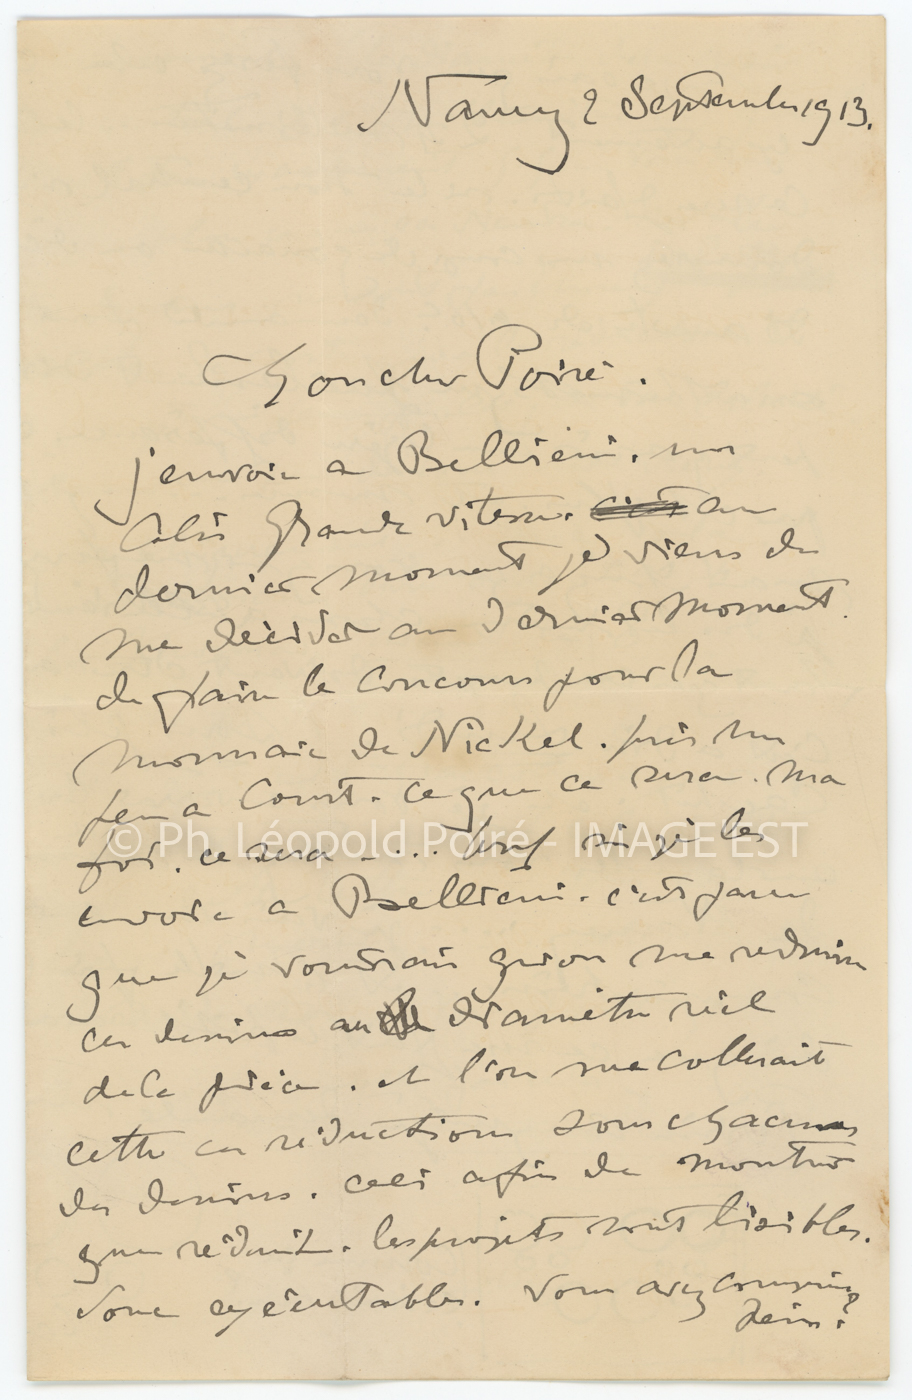 Nancy 2 Septembre 1913.
Mon cher Poiré.
j'envoie a Bellieni. un
Colis Grande vitesse. au
dernier moment je viens de
me décider au dernier moment.
de faire le Concours pour la
monnaie de Nickel. pris un
peu a Court. ce que ce sera. ma
foi. ce sera .... si je les
© Ph. Léopold Poiré - IMAGE'EST
envoie a Bellieni. c'est parce
que je voudrais qu'on me reduise
ces dessins au diamètre réel
de la pièce. et l'on me collerait
cette ces réductions sous chacun
des dessins. ceci afin de montrer
que réduit. les projets sont lisibles.
donc exécutables. Vous avez compris
hein?